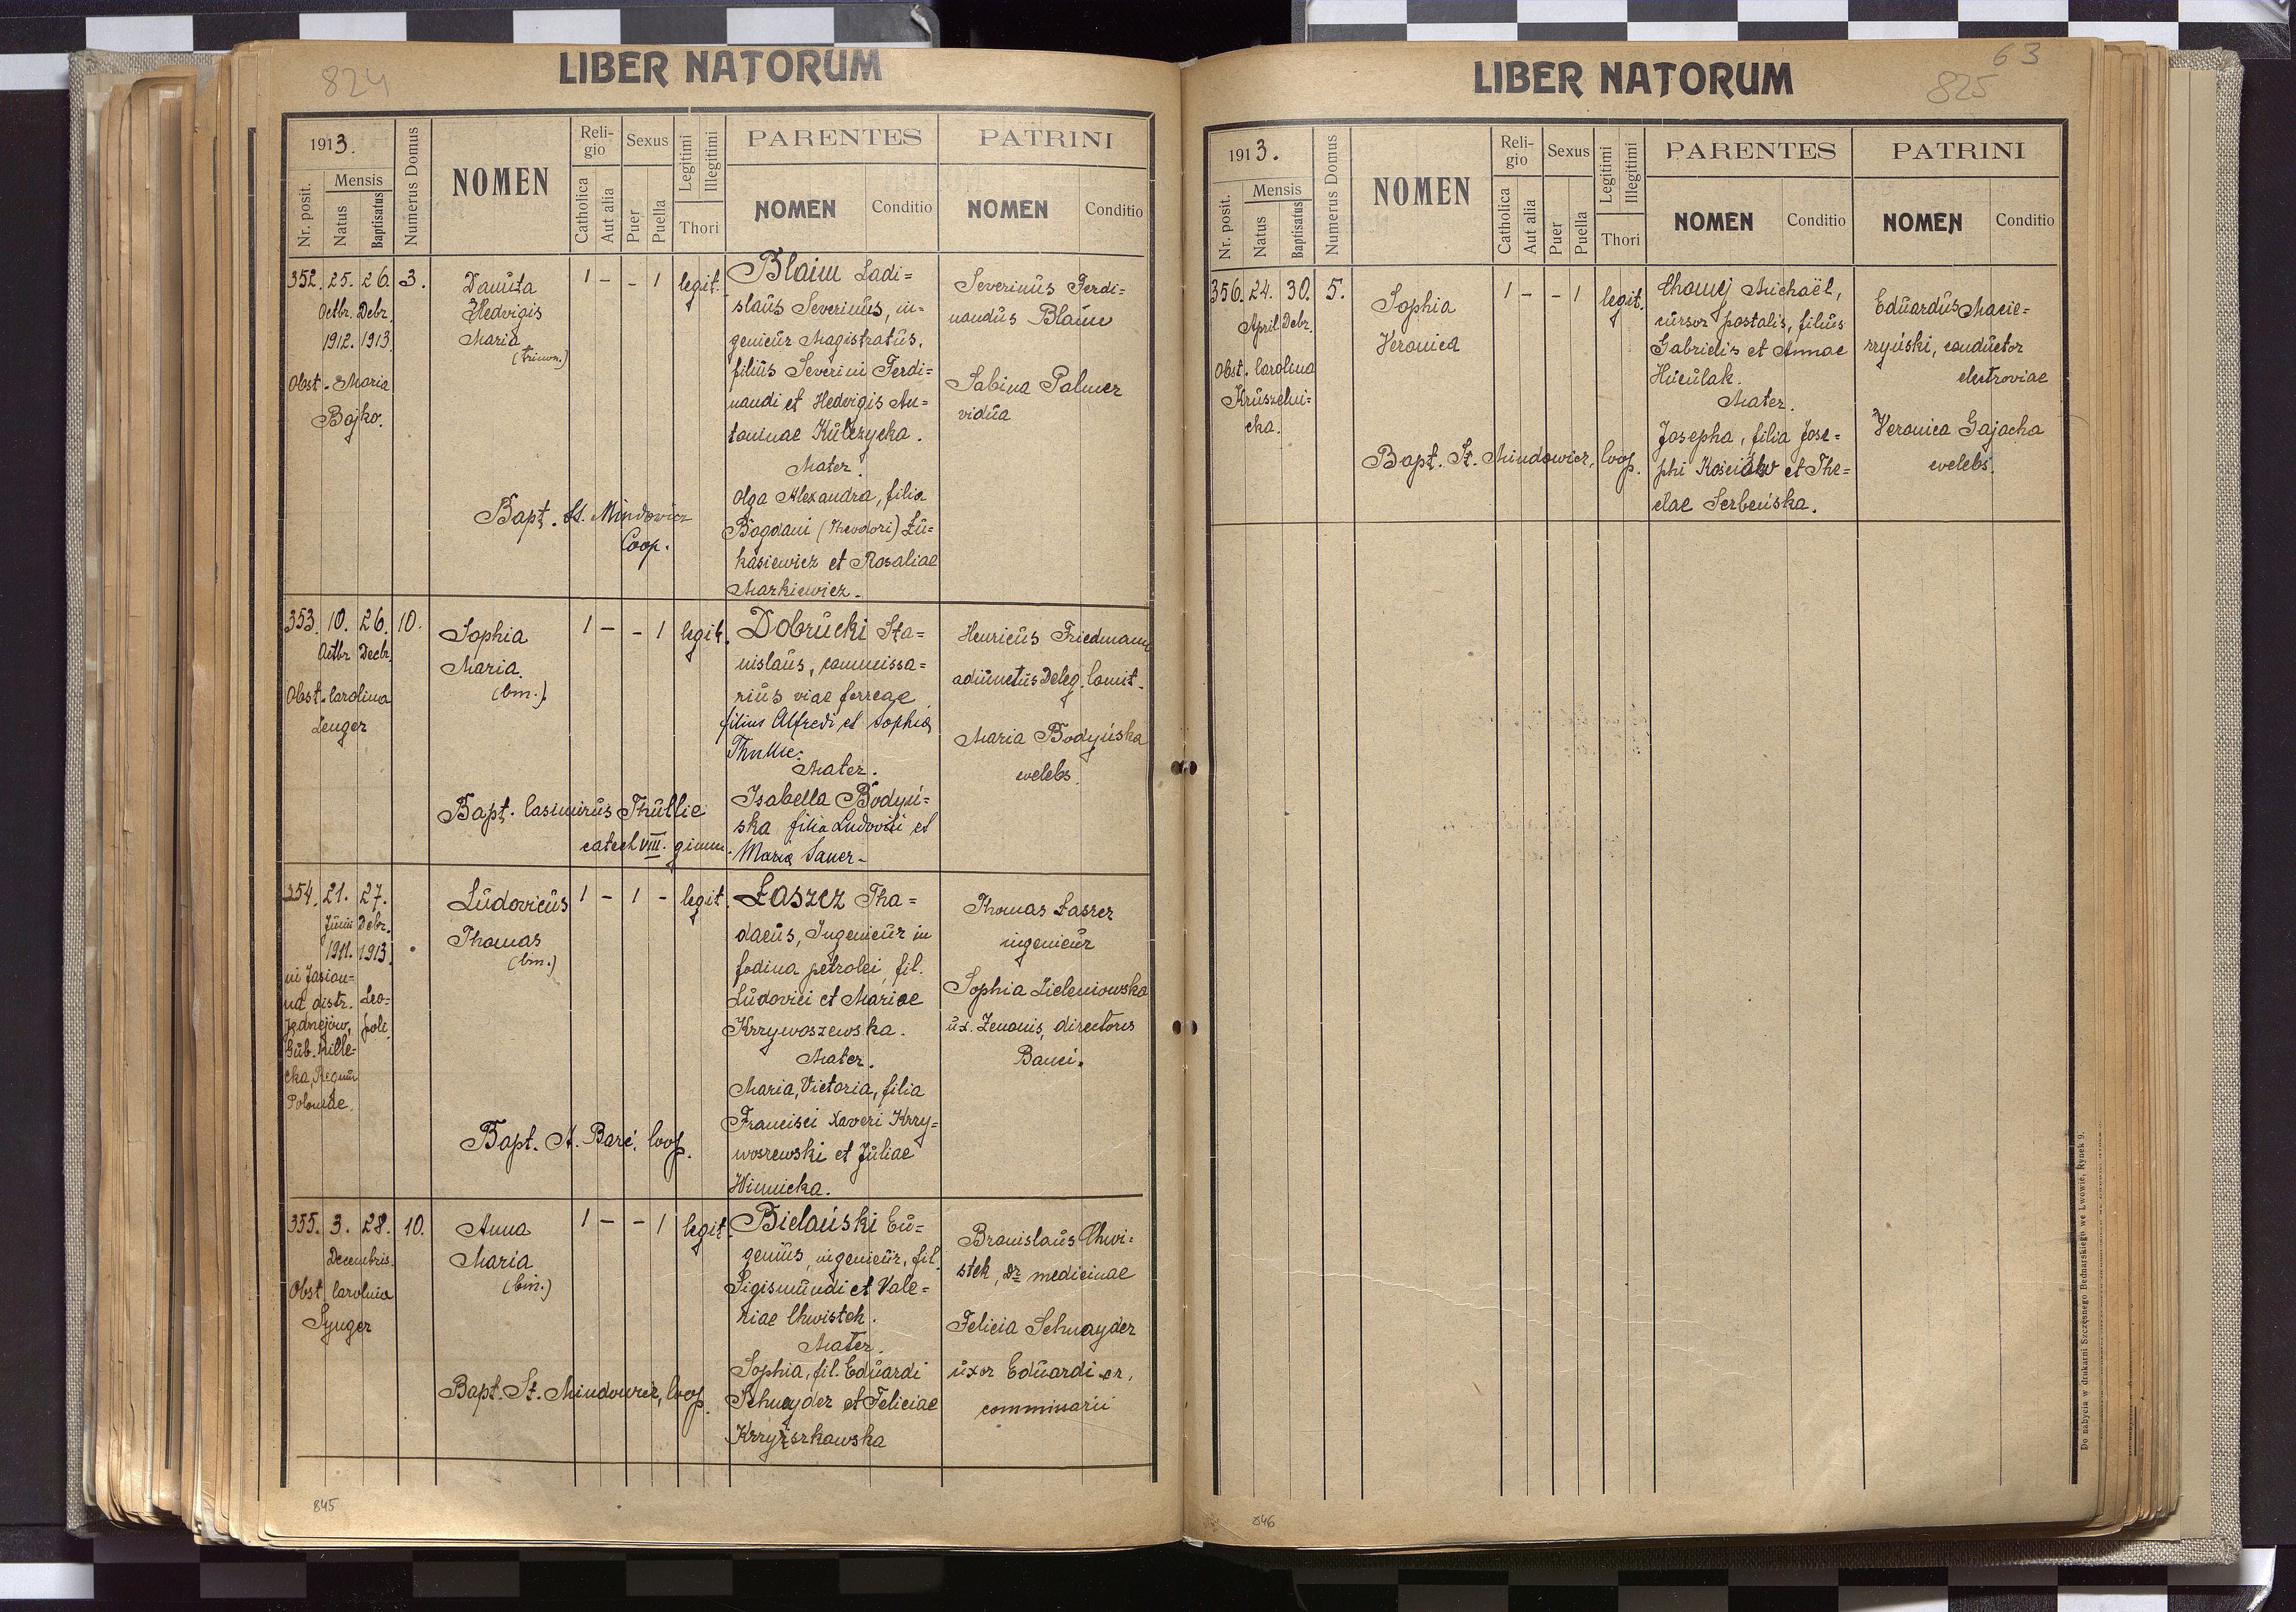 824
LIBER NATORUM
1913.
Nr. posit.
Mensis
Natus
Baptisatus
Numerus Domus
NOMEN
Religio
Catholica
Aut alia
Sexus
Puer
Puella
Legitimi
Illegitimi
Thori
PARENTES
NOMEN
Conditio
PATRINI
NOMEN
Conditio
352. 25. 26. 3.
Octbr. Debr.
1912. 1913.
Obst. Maria
Bojko.
Danuta
Hedvigis
Maria
(trinom.)
1 - - 1 legit.
Bapt. St. Mindowicz
Coop.
Blaim Ladi=
slaus Severinus, in=
genieur Magistratus,
filius Severini Ferdi=
nandi et Hedvigis An=
toninae Kulczycka.
Mater.
Olga Alexandra, filia
Bogdani (Theodori) Łu=
kasiewicz et Rosaliae
Markiewicz.
Severinus Ferdi=
nandus Blaim
Sabina Palmer
vidua
353. 10. 26. 10.
Octbr. Decbr.
Obst. Carolina
Zenger
Sophia
Maria.
(bin.)
1 - - 1 legit.
Bapt. Casimirus Thullie
catech VIII. gimn.
Dobrucki Sta=
nislaus, commissa=
rius viae ferreae
filius Alfredi et Sophia
Thullie.
Mater.
Isabella Bodyń=
ska filia Ludovici et
Maria Sauer-
Henricus Friedmann
adiunctus Deleg. Comit.
Maria Bodyńska
coelebs.
354. 21. 27.
Junii Debr.
1911. 1913.
in Jasion=
na distr. Leo=
Jędrzejów, poli.
Gub. Kiele=
cka, Regnum
Poloniae.
Ludovicus
Thomas
(bin.)
1 - 1 - legit.
Bapt. A. Barć, Coop.
Łaszcz Tha=
daeus, Ingenieur in
fodina petrolei, fil.
Ludovici et Mariae
Krzywoszewska.
Mater.
Maria, Victoria, filia
Francisci Xaveri Krzy=
woszewski et Juliae
Winnicka.
Thomas Łaszcz
ingenieur
Sophia Zieleniowska
ux. Zenonis, directoris
Banci.
355. 3. 28. 10.
Decembris.
Obst. Carolina
Synger
Anna
Maria
(bin.)
1 - - 1 legit.
Bapt. St. Mindowicz, Coop.
Bielański Eu=
genius, ingenieur, fil.
Sigismundi et Vale=
riae Chwistek.
Mater.
Sophia, fil. Eduardi
Schnayder et Feliciae
Krzyżkowska
Bronislaus Chwi=
stek, Dr. medicinae
Felicia Schnayder
uxor Eduardi
commissarii
845
63
825
LIBER NATORUM
1913.
Nr. posit.
Mensis
Natus
Baptisatus
Numerus Domus
NOMEN
Religio
Catholica
Aut alia
Sexus
Puer
Puella
Legitimi
Illegitimi
Thori
PARENTES
NOMEN
Conditio
PATRINI
NOMEN
Conditio
356. 24. 30. 5.
April Debr.
Obst. Carolina
Kruszelni=
cka.
Sophia
Veronica
1 - - 1 legit.
Bapt. St. Mindowicz, Coop.
Chomej Michaël,
cursor postalis, filius
Gabrielis et Annae
Huculak.
Mater.
Josepha, filia Jose=
phi Kościów et The=
clae Serbeńska.
Eduardus Macie=
rzyński, conductor
electroviae
Veronica Gajocha
coelebs.
846
Do nabycia w drukarni Szczęsnego Bednarskiego we Lwowie, Rynek 9.